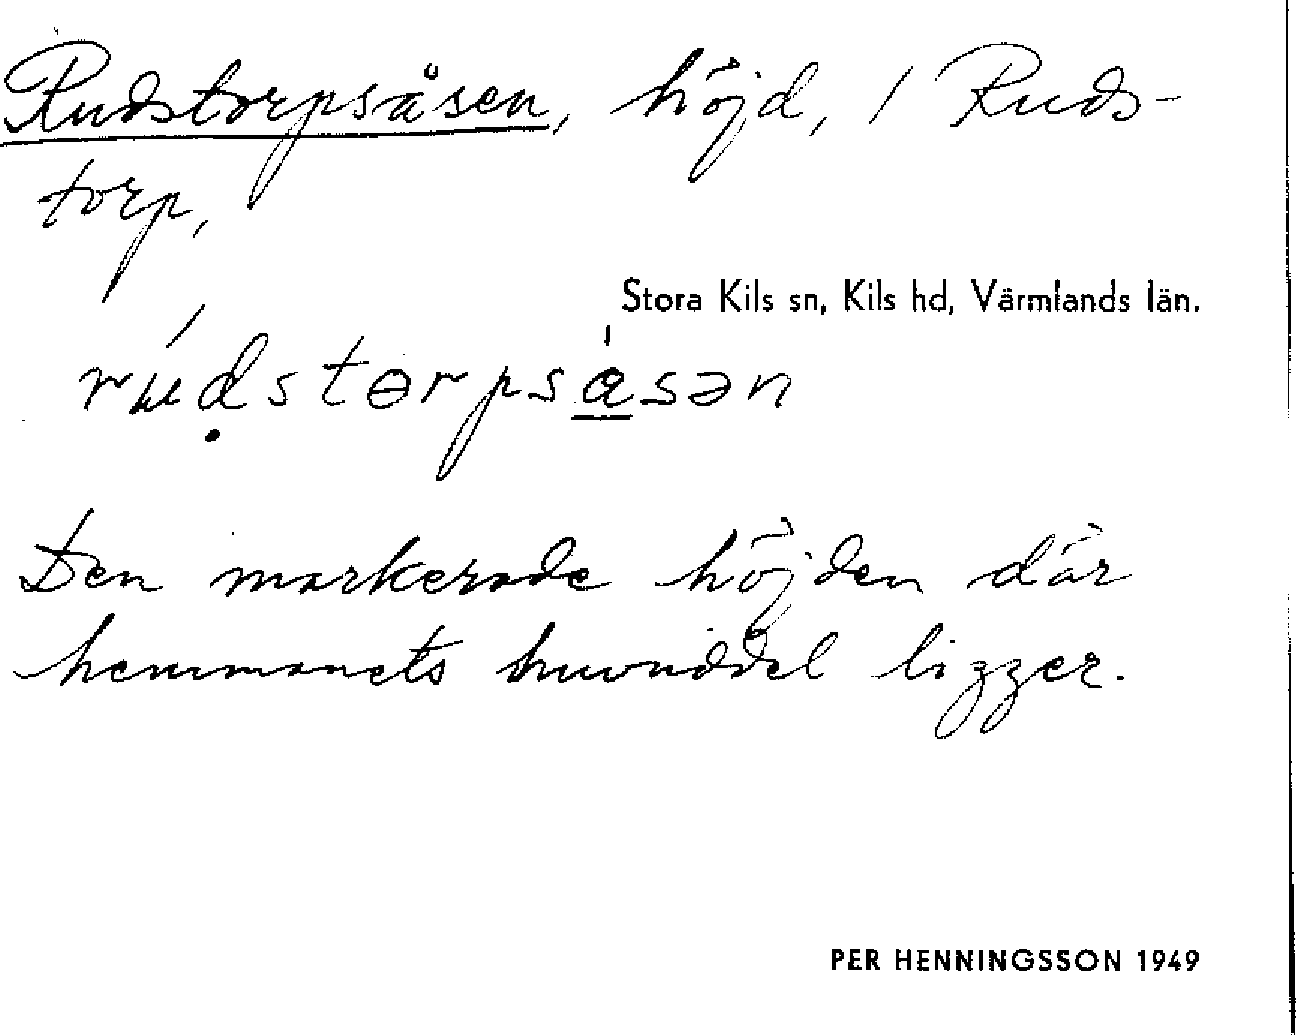 Rudstorpsåsen, höjd, / Ruds-
torp,
Stora Kils sn, Kils hd, Värmlands län.
rúḍstɵrpsa̲̍sən
Den markerade höjden där
hemmanets huvuddel ligger.
PER HENNINGSSON 1949